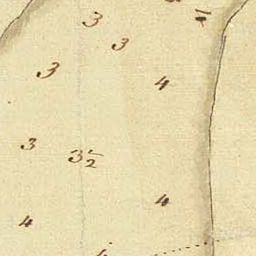 3
3
3
4
3
3½
4
4